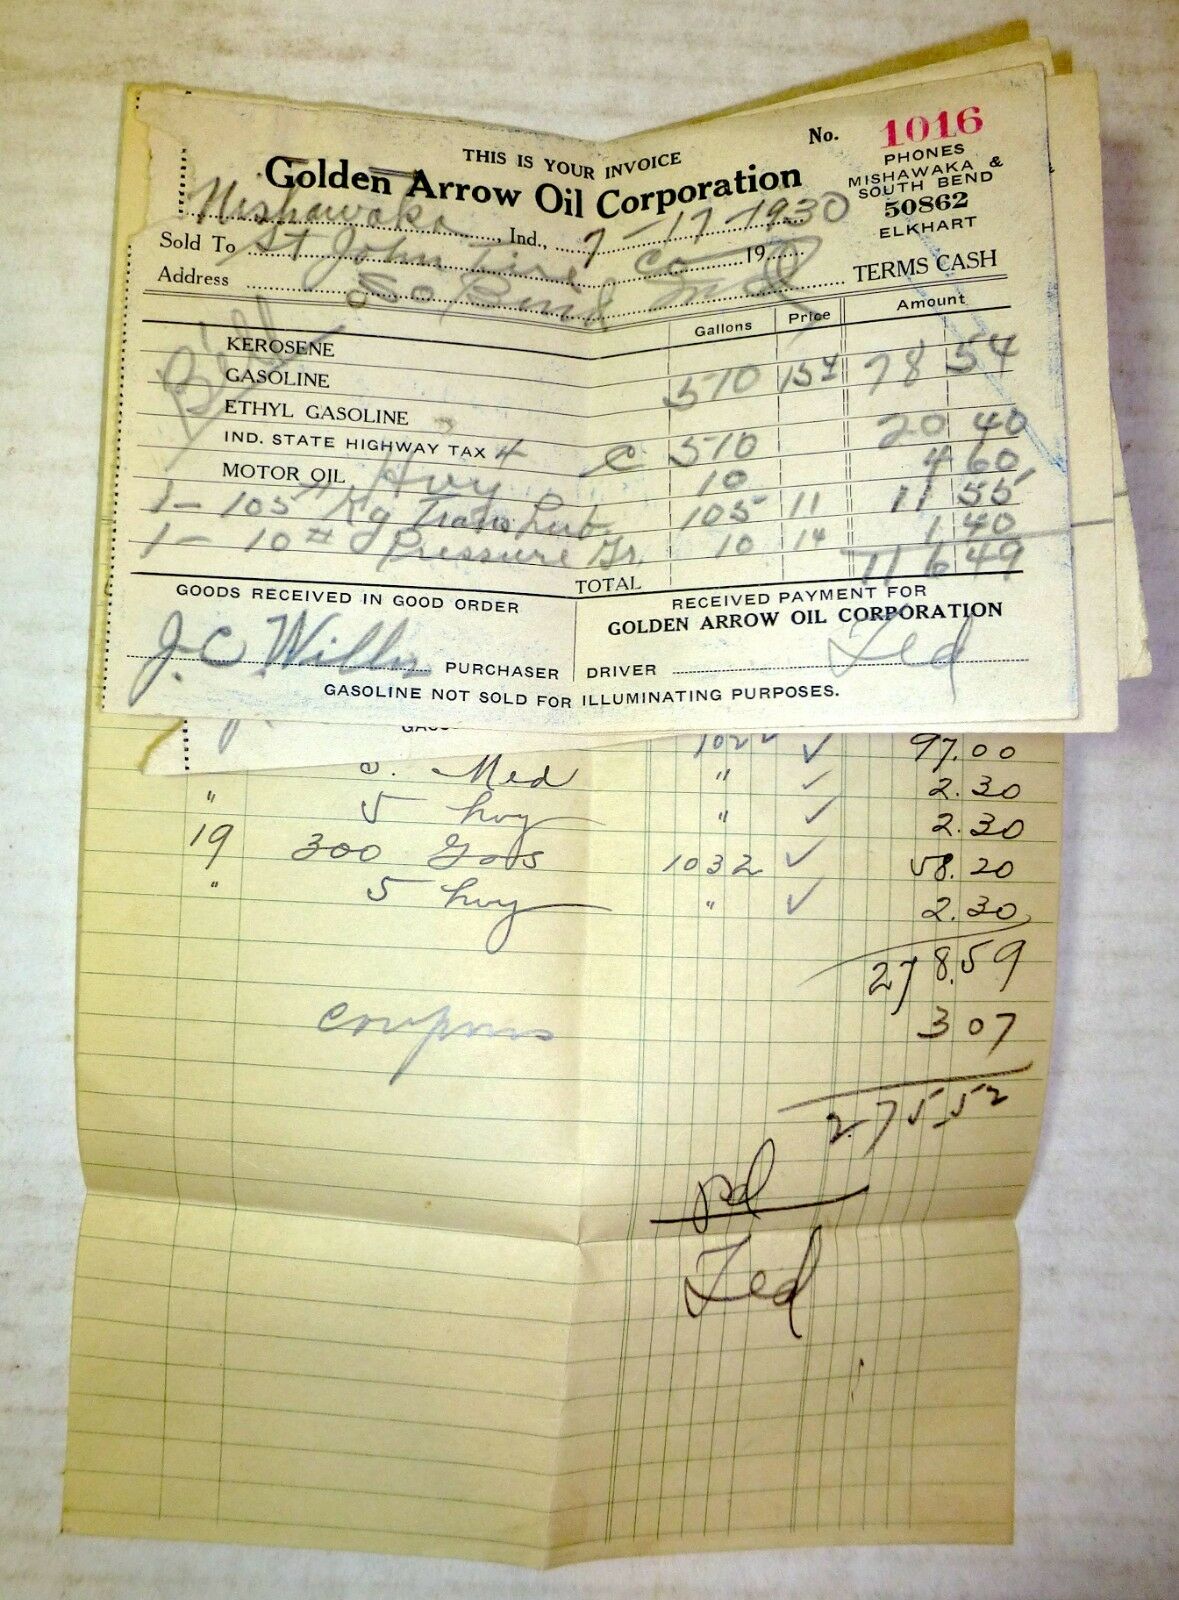 THIS IS YOUR INVOICE
No. 1016
Golden Arrow Oil Corporation
PHONES
MISHAWAKA &
SOUTH BEND
50862
ELKHART
Mishawaka, Ind., 7-17-1930 19
Sold To St John Tire Co
TERMS CASH
Address So Bend Ind
Gallons Price Amount
KEROSENE
GASOLINE 510 154 78 54
ETHYL GASOLINE
IND. STATE HIGHWAY TAX 4 c 510 20 40
MOTOR OIL Hvy 10 4 60
1 - 105 # Kg Trans Lub 105 11 11 55
1 - 10 # Pressure Gr. 10 14 1 40
TOTAL 116 49
GOODS RECEIVED IN GOOD ORDER
RECEIVED PAYMENT FOR
GOLDEN ARROW OIL CORPORATION
J.C. PURCHASER
DRIVER Ted
GASOLINE NOT SOLD FOR ILLUMINATING PURPOSES.
97.00
5. Med " ✓ 2.30
" 5 hvy " ✓ 2.30
19 300 Gas 1032 ✓ 58.20
" 5 hvy " ✓ 2.30
278.59
coupons 3 07
275.52
pd
Ted